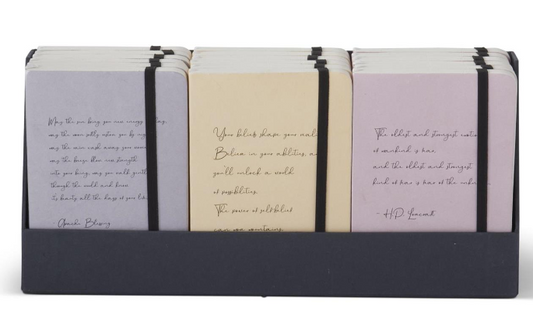 May the sun bring you new energy
may the moon softly restore you by
may the rain wash away your
may the breeze blow new strength
into your being, may you walk gently
through the world and know
its beauty all the days of your life
- Apache Blessing
Your beliefs shape your
Believe in your abilities, and
you'll unlock a world
of possibilities.
The power of self-belief
can move mountains
The oldest and strongest
of mankind is fear,
and the oldest and strongest
kind of fear is fear of the
- H.P. Lovecraft